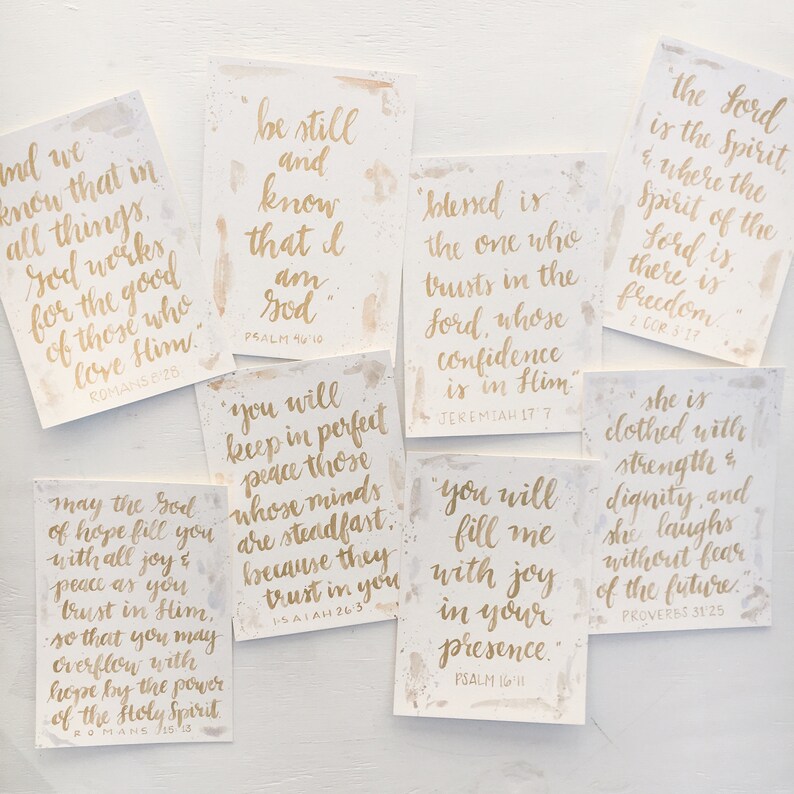 and we
know that in
all things,
God works
for the good
of those who
love Him."
ROMANS 8:28
"be still
and
know
that I
am
God"
PSALM 46:10
"blessed is
the one who
trusts in the
Lord, whose
confidence
is in Him."
JEREMIAH 17:7
"the Lord
is the Spirit,
& where the
Spirit of the
Lord is,
there is
freedom."
2 COR 3:17
may the God
of hope fill you
with all joy &
peace as you
trust in Him,
so that you may
overflow with
hope by the power
of the Holy Spirit.
ROMANS 15:13
"you will
keep in perfect
peace those
whose minds
are steadfast,
because they
trust in you
ISAIAH 26:3
"you will
fill me
with joy
in your
presence."
PSALM 16:11
"she is
clothed with
strength &
dignity, and
she laughs
without fear
of the future."
PROVERBS 31:25